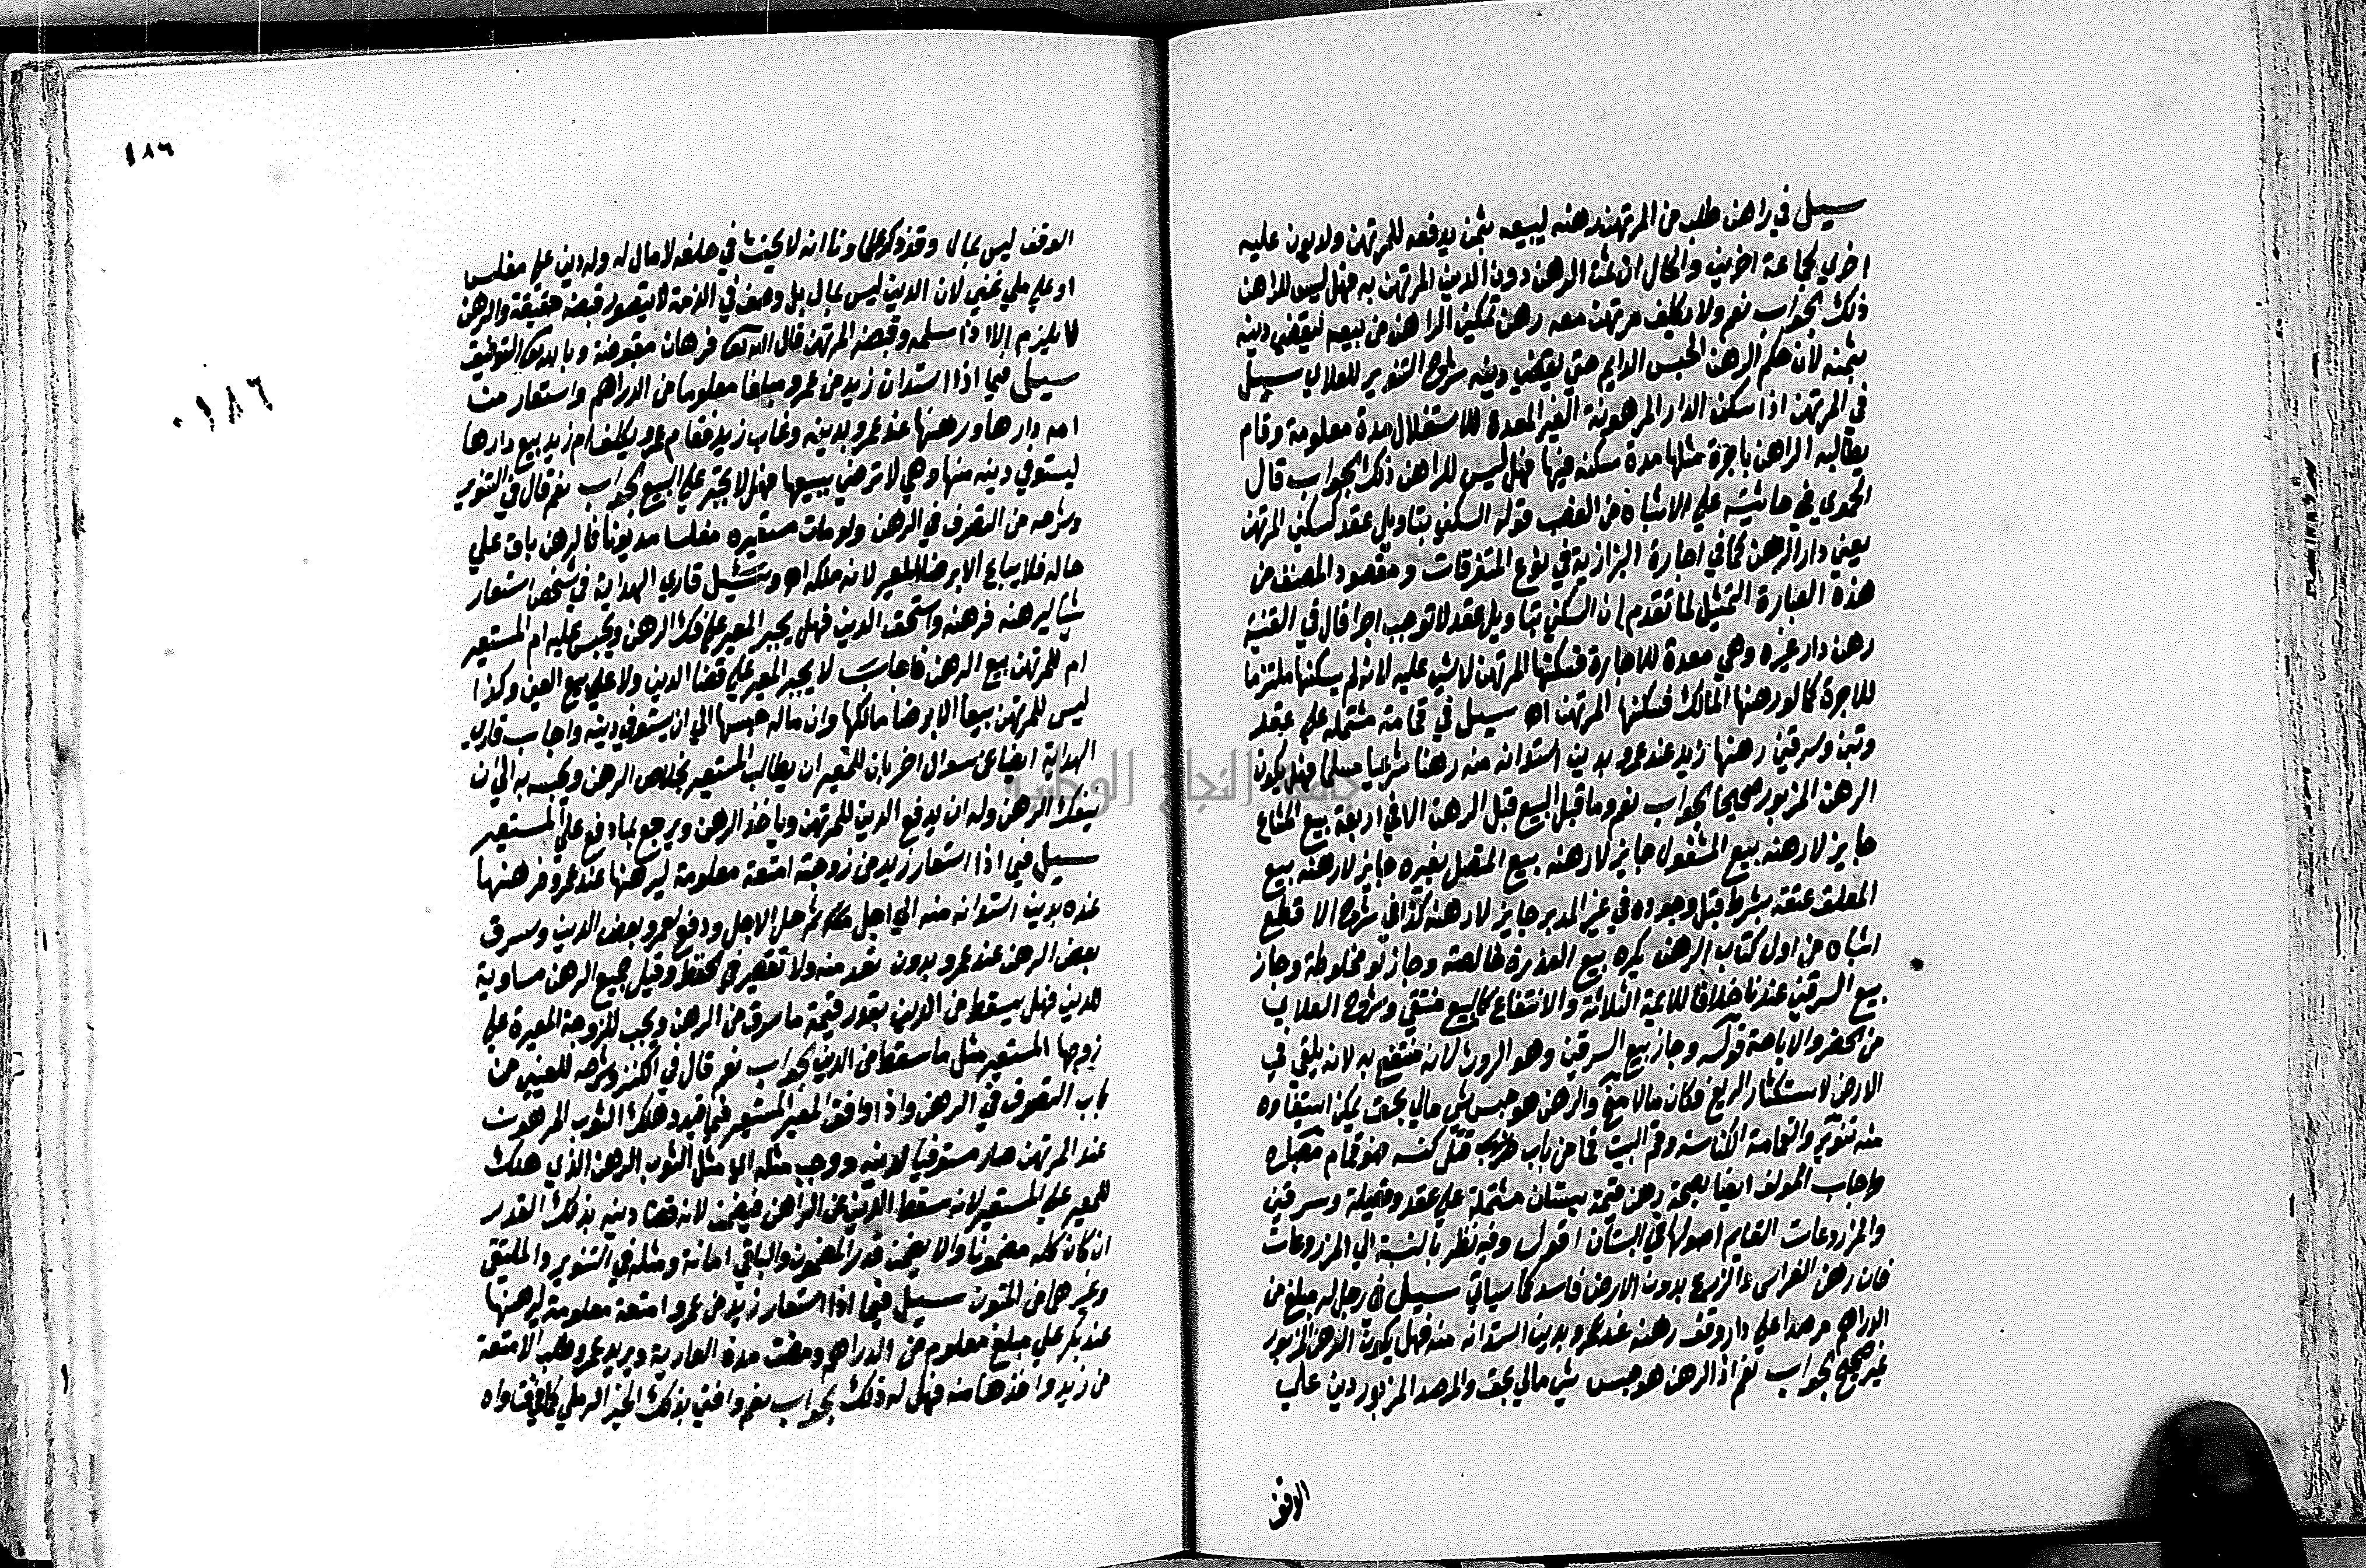 سيل في راهن طلب من المرتهن رهنه ليبيعه بثمن يدفعه للمرتهن وديون عليه
اخري لجماعة اخرين والحال ان ثمن الرهن دون الدين المرتهن به فهل ليس للراهن
ذلك الجواب نعم ولا يكلف مرتهن معه رهن تمكين الراهن من بيعه ليقضي دينه
بثمنه لان حكم الرهن الحبس الدايم حتي يقضي دينه شرح التنوير للعلاي سيل
في المرتهن اذا سكن الدار المرهونة الغير المعدة للاستغلال مدة معلومة وقام
يطالبه الراهن باجرة مثلها مدة سكنه فيها فهل ليس للراهن ذلك الجواب قال
الحموي في حاشيته علي الاشباه من الغصب قوله السكني بتاويل عقد كسكني المرتهن
يعني دار الرهن كما في اجارة البزازية في نوع المتفرقات ومقصود المصنف من
هذه العبارة التمثيل لما تقدم ان السكني بتاويل عقد لا توجب اجرا قال في القنية
رهن دار غيره وهي معدة للاجارة فسكنها المرتهن لا شي عليه لانه لم يسكنها ملتزما
للاجرة كما لو رهنها المالك فسكنها المرتهن اه سيل في قمامة مشتملة علي عقد
وتبن وسرقين رهنها زيد عند عمرو بدين استدانه منه رهنا شرعيا مسلما فهل يكون
الرهن المزبور صحيحا الجواب نعم وما قبل البيع قبل الرهن الا في اربعة بيع المشاع
جايز لا رهنه بيع المشغول جايز لا رهنه بيع المتصل بغيره جايز لا رهنه بيع
المعلق عتقه بشرط قبل وجوده في غير المدبر جايز لا رهنه كذا في شرح الاقطع
اشباه من اول كتاب الرهن كره بيع العذرة خالصة وجاز لو مخلوطة وجاز
بيع السرقين عندنا خلافا للايمة الثلاثة والانتفاع كالبيع ملتقي وشرح العلاي
من الحضر والاباحة قوله وجاز بيع السرقين وهو الروث لانه منتفع به لانه يلقي في
الارض لاستكثار الريع فكان مالا منح والرهن هو حبس شي مالي بحق يمكن استيفاوه
منه تنوير والقمامة الكناسة وقم البيت قما من باب قتل كنسه فهو قمام مصباح
واجاب المولف ايضا بصحة رهن قيمة ببستان مشتملة علي عقد وفصيلة وسرقين
والمزروعات القايم اصولها في البستان اقول وفيه نظر بالنسبة الي المزروعات
فان رهن الغراس والزرع بدون الارض فاسد كما سياتي سيل في رجل له مبلغ من
الدراهم مرصدا علي دار وقف رهنه عند عمرو بدين استدانه منه فهل يكون الرهن المزبور
غير صحيح الجواب نعم اذ الرهن هو حبس شي مالي بحق والمرصد المزبور دين علي
الوقف
١٨٦
٠١٨٦
الوقف ليس بمال وقد ذكر علماونا انه لا يحنث في حلفه لا مال له وله دين علي مفلس
او علي ملي غني لان الدين ليس بمال بل وصف في الذمة لا يتصور قبضه حقيقة والرهن
لا يلزم الا اذا سلمه وقبضه المرتهن قال الله تعالى فرهان مقبوضة وبالله التوفيق
سيل فيما اذا استدان زيد من عمرو مبلغا معلوما من الدراهم واستعار من
امه دارها ورهنها عند عمرو بدينه وغاب زيد فقام عمرو يكلف ام زيد ببيع دارها
ليستوفي دينه منها وهي لا ترضي ببيعها فهل لا تجبر علي البيع الجواب نعم قال في التنوير
وشرحه من التصرف في الرهن ولو مات مستعيره مفلسا مديونا فالرهن باق علي
حاله فلا يباع الا برضا المعير لانه ملكه اه وسئيل قاري الهداية في شخص استعار
شيا ليرهنه فرهنه واستحق الدين فهل يجبر المعير علي فك الرهن ويحبس عليه ام المستعير
ام للمرتهن بيع الرهن فاجاب لا يجبر المعير علي قضا الدين ولا علي بيع العين وكذا
ليس للمرتهن بيعها الا برضا مالكها وانما له حبسها الي ان يستوفي دينه واجاب قاري
الهداية ايضا عن سوال اخر بان للمعير ان يطالب المستعير بخلاص الرهن ويحبسه به الي ان
يفك الرهن وله ان يدفع الدين للمرتهن وياخذ الرهن ويرجع بما دفع علي المستعير
سيل فيما اذا استعار زيد من زوجته امتعة معلومة ليرهنها عند عمرو فرهنها
عنده بدين استدانه منه الي اجل ثم حل الاجل ودفع لعمرو بعض الدين وسرق
بعض الرهن عند عمرو بدون تعد منه ولا تقصير في الحفظ وقيل جميع الرهن مساوية
للدين فهل يسقط من الدين بقدر قيمة ما سرق من الرهن ويجب للزوجة المعيرة علي
زوجها المستعير مثل ما سقط من الدين الجواب نعم قال في الكنز وشرحه للعيني من
باب التصرف في الرهن واذا وافق المعير المستعير فيما قيد وهلك الثوب المرهون
عند المرتهن صار مستوفيا لدينه ووجب مثله اي مثل الثوب الرهن الذي هلك
للمعير علي المستعير لانه سقط الدين عن الراهن فيضمن لانه قضا دينه بذلك القدر
ان كان كله مضمونا والا يضمن قدر المضمون والباقي امانة ومثله في التنوير والملتقي
وغيرهما من المتون سيل فيما اذا استعار زيد من عمرو امتعة معلومة ليرهنها
عند بكر علي مبلغ معلوم من الدراهم ومضت مدة العارية ويريد عمرو طلب الامتعة
من زيد واخذها منه فهل له ذلك الجواب نعم وافتي بذلك الخير الرملي كما في فتاواه
جامعة النجاح الوطنية